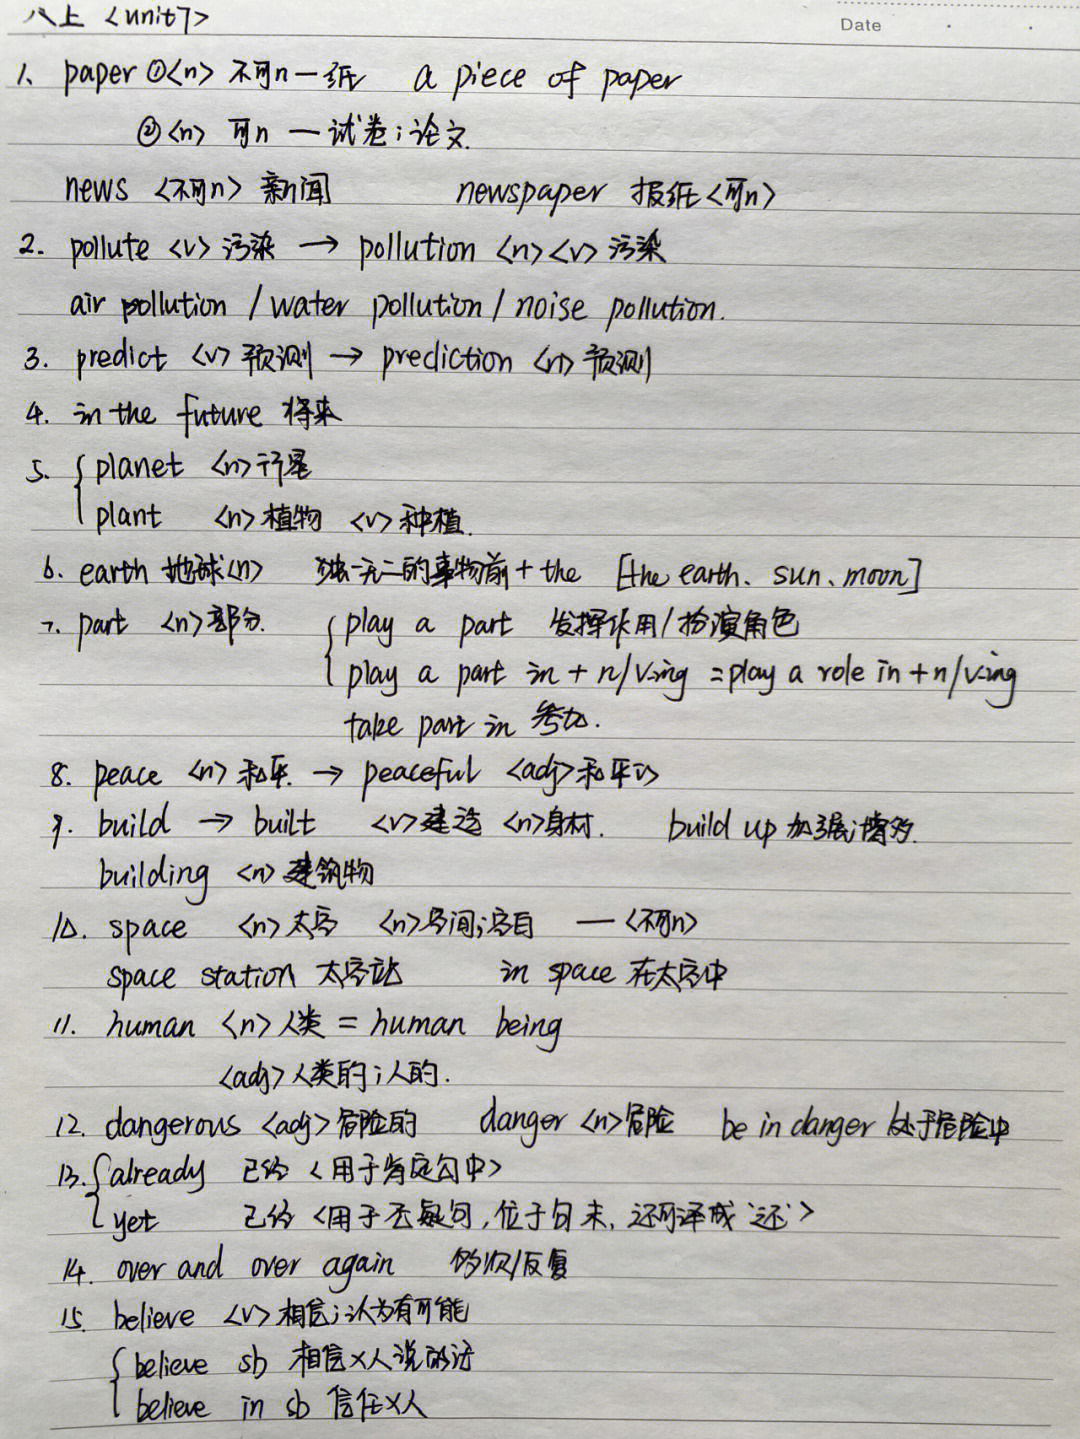 八上 <unit7>
Date
1、 paper ①<n> 不可n — 纸 a piece of paper
②<n> 可n — 试卷；论文.
news <不可n> 新闻 newspaper 报纸 <可n>
2. pollute <v> 污染 → pollution <n><v> 污染
air pollution / water pollution / noise pollution.
3. predict <v> 预测 → prediction <n> 预测
4. in the future 将来
5. { planet <n> 行星
plant <n> 植物 <v> 种植.
6. earth 地球<n> 独一无二的事物前 + the [the earth、sun、moon]
7. part <n> 部分. { play a part 发挥作用/扮演角色
play a part in + n/v-ing = play a role in + n/v-ing
take part in 参加.
8. peace <n> 和平. → peaceful <adj> 和平的
9. build → built <v> 建造 <n> 身材. build up 加强；增多.
building <n> 建筑物
10. space <n> 太空 <n> 空间；空白 — <不可n>
space station 太空站 in space 在太空中
11. human <n> 人类 = human being
<adj> 人类的；人的.
12. dangerous <adj> 危险的 danger <n> 危险 be in danger 处于危险中
13. { already 已经 <用于肯定句中>
yet 已经 <用于否疑句, 位于句末, 还可译成“还”>
14. over and over again 多次/反复
15. believe <v> 相信；认为有可能
{ believe sb 相信×人说的话
believe in sb 信任×人